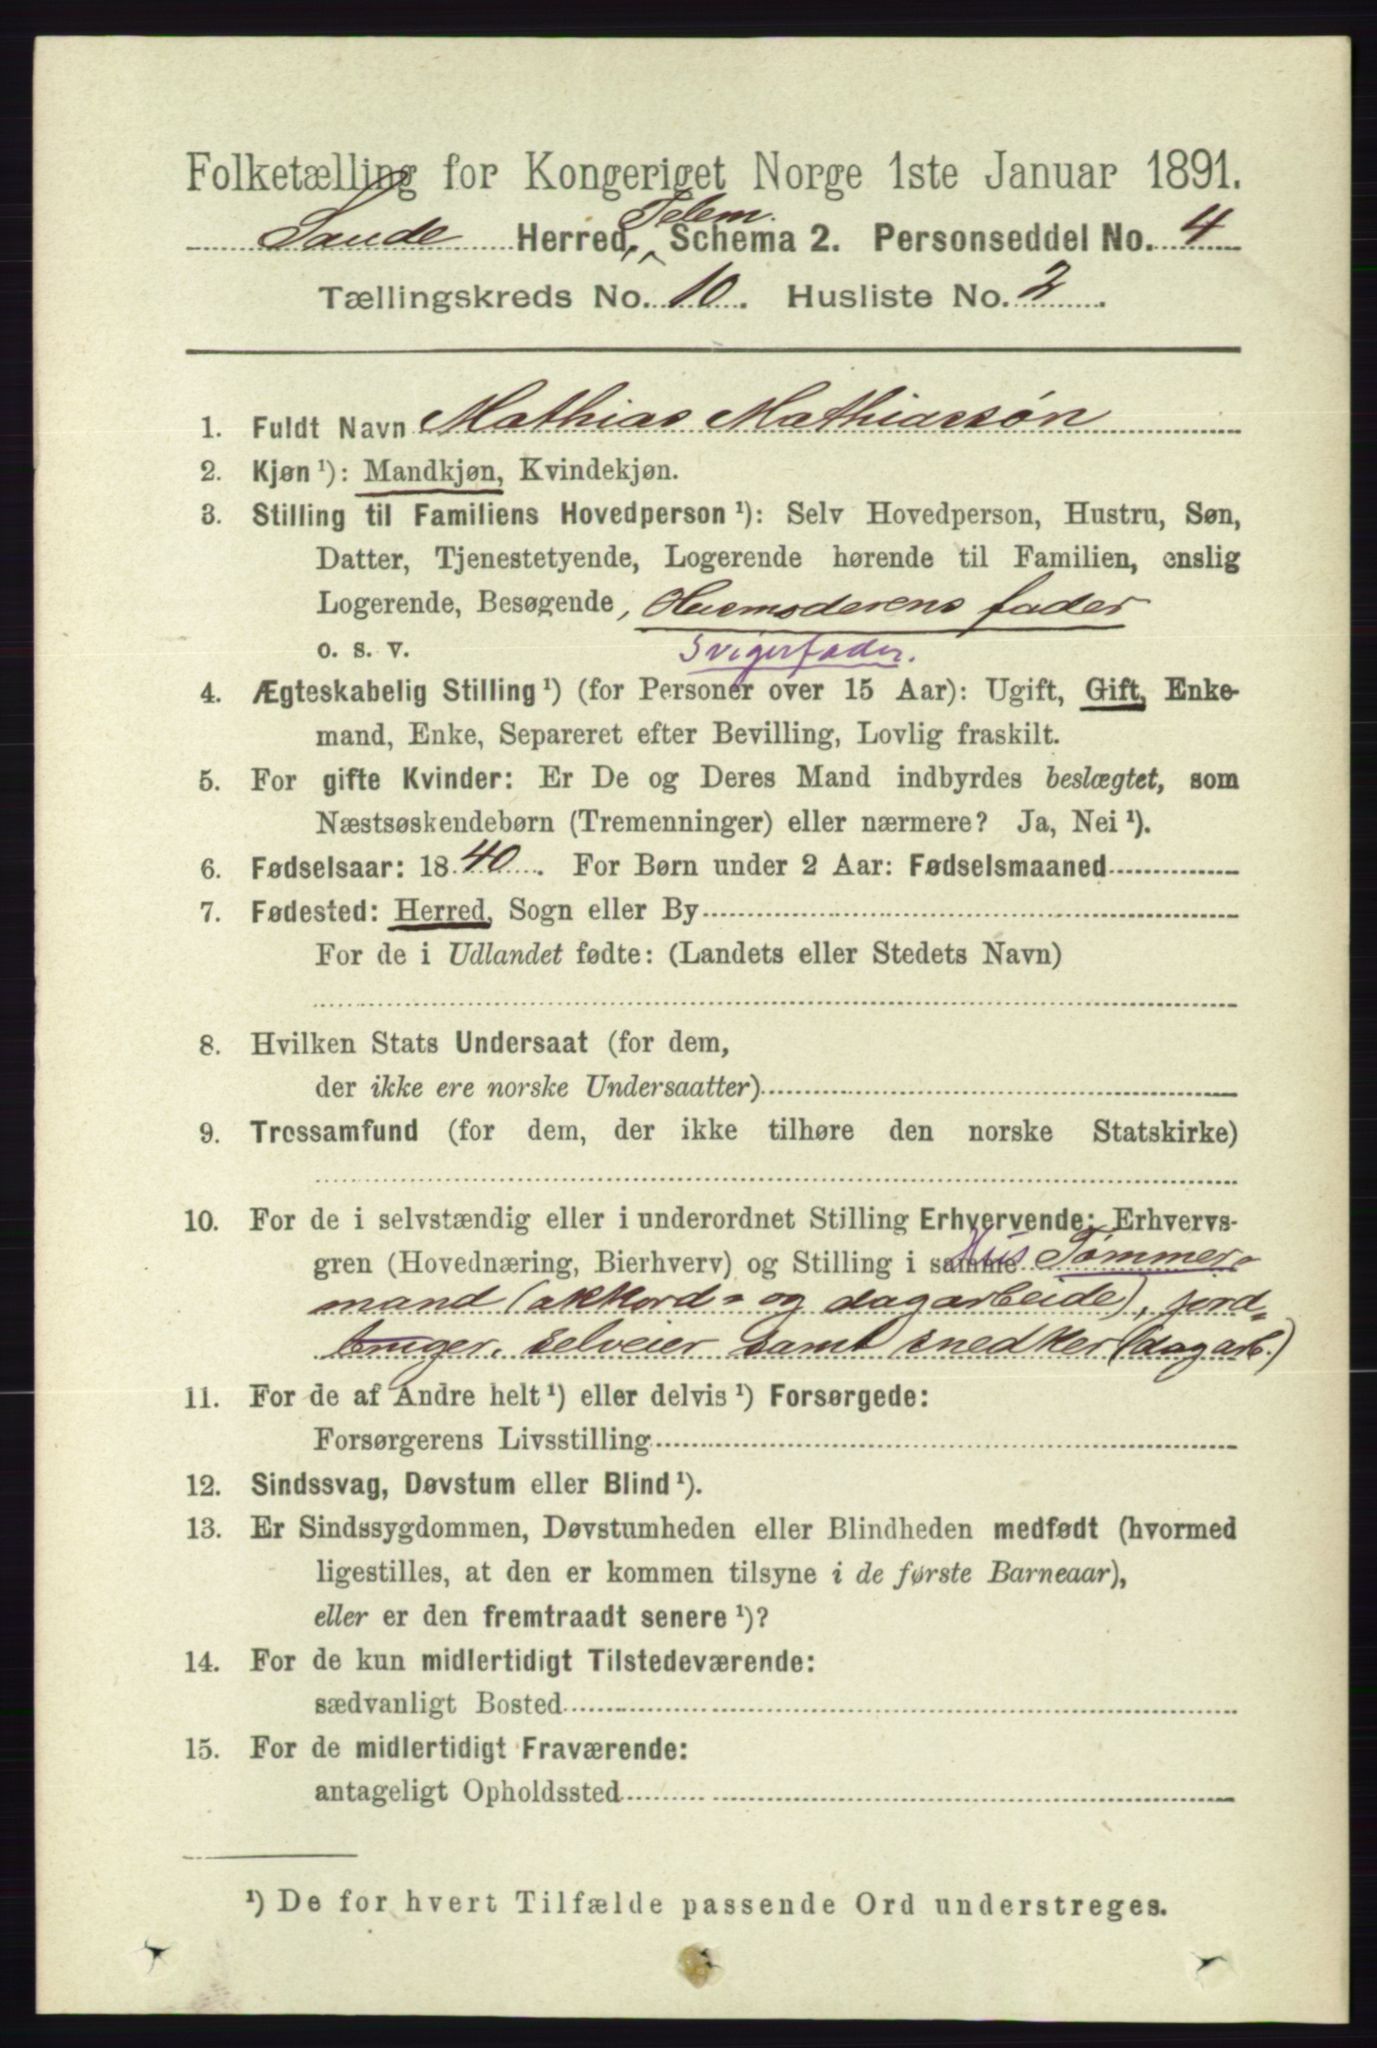 Folketælling for Kongeriget Norge 1ste Januar 1891.
Telem.
Saude Herred, Schema 2. Personseddel No. 4
Tællingskreds No. 10. Husliste No. 2.
1. Fuldt Navn Mathias Mathiassøn
2. Kjøn ¹): Mandkjøn, Kvindekjøn.
3. Stilling til Familiens Hovedperson ¹): Selv Hovedperson, Hustru, Søn,
Datter, Tjenestetyende, Logerende hørende til Familien, enslig
Logerende, Besøgende, Husmoderens fader
o. s. v. Svigerfader.
4. Ægteskabelig Stilling ¹) (for Personer over 15 Aar): Ugift, Gift, Enke-
mand, Enke, Separeret efter Bevilling, Lovlig fraskilt.
5. For gifte Kvinder: Er De og Deres Mand indbyrdes beslægtet, som
Næstsøskendebørn (Tremenninger) eller nærmere? Ja, Nei ¹).
6. Fødselsaar: 1840. For Børn under 2 Aar: Fødselsmaaned
7. Fødested: Herred, Sogn eller By
For de i Udlandet fødte: (Landets eller Stedets Navn)
8. Hvilken Stats Undersaat (for dem,
der ikke ere norske Undersaatter)
9. Trossamfund (for dem, der ikke tilhøre den norske Statskirke)
10. For de i selvstændig eller i underordnet Stilling Erhvervende: Erhvervs-
gren (Hovednæring, Bierhverv) og Stilling i samme Hus Tømmer-
mand (akkord- og dagarbeide), jord-
bruger, selveier samt snedker (dagarb.)
11. For de af Andre helt ¹) eller delvis ¹) Forsørgede:
Forsørgerens Livsstilling
12. Sindssvag, Døvstum eller Blind ¹).
13. Er Sindssygdommen, Døvstumheden eller Blindheden medfødt (hvormed
ligestilles, at den er kommen tilsyne i de første Barneaar),
eller er den fremtraadt senere ¹)?
14. For de kun midlertidigt Tilstedeværende:
sædvanligt Bosted
15. For de midlertidigt Fraværende:
antageligt Opholdssted
¹) De for hvert Tilfælde passende Ord understreges.